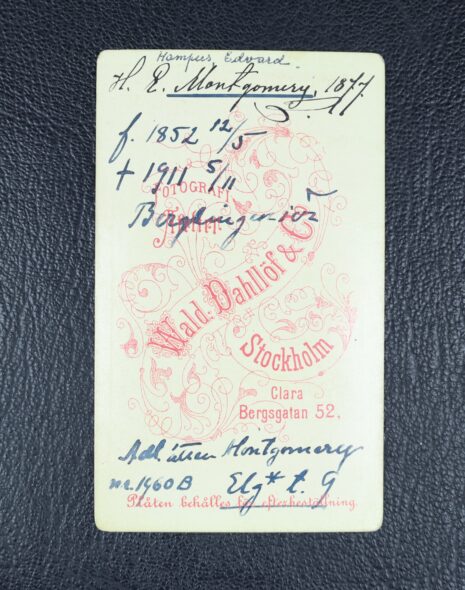 Hampus Edvard.
H. E. Montgomery, 1877.
f. 1852 12/5
† 1911 5/11
FOTOGRAFI
Atelier
Wald. Dahllöf & Co
Stockholm
Clara
Bergsgatan 52.
Adl. ätten Montgomery
nr. 1960B
Plåten behålles för efterbeställning.